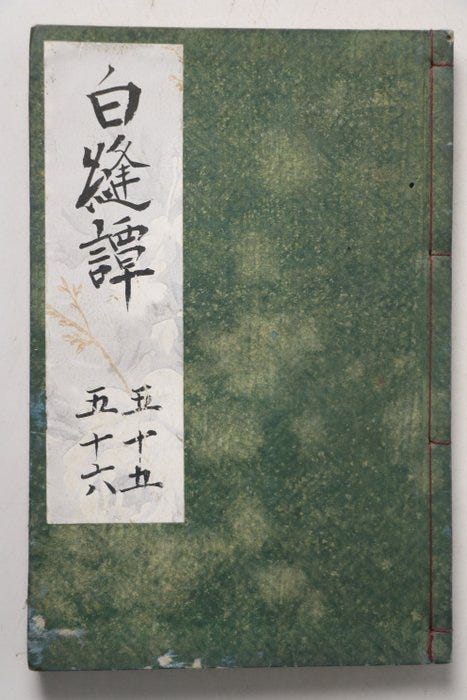 白縫譚
五十五
五十六